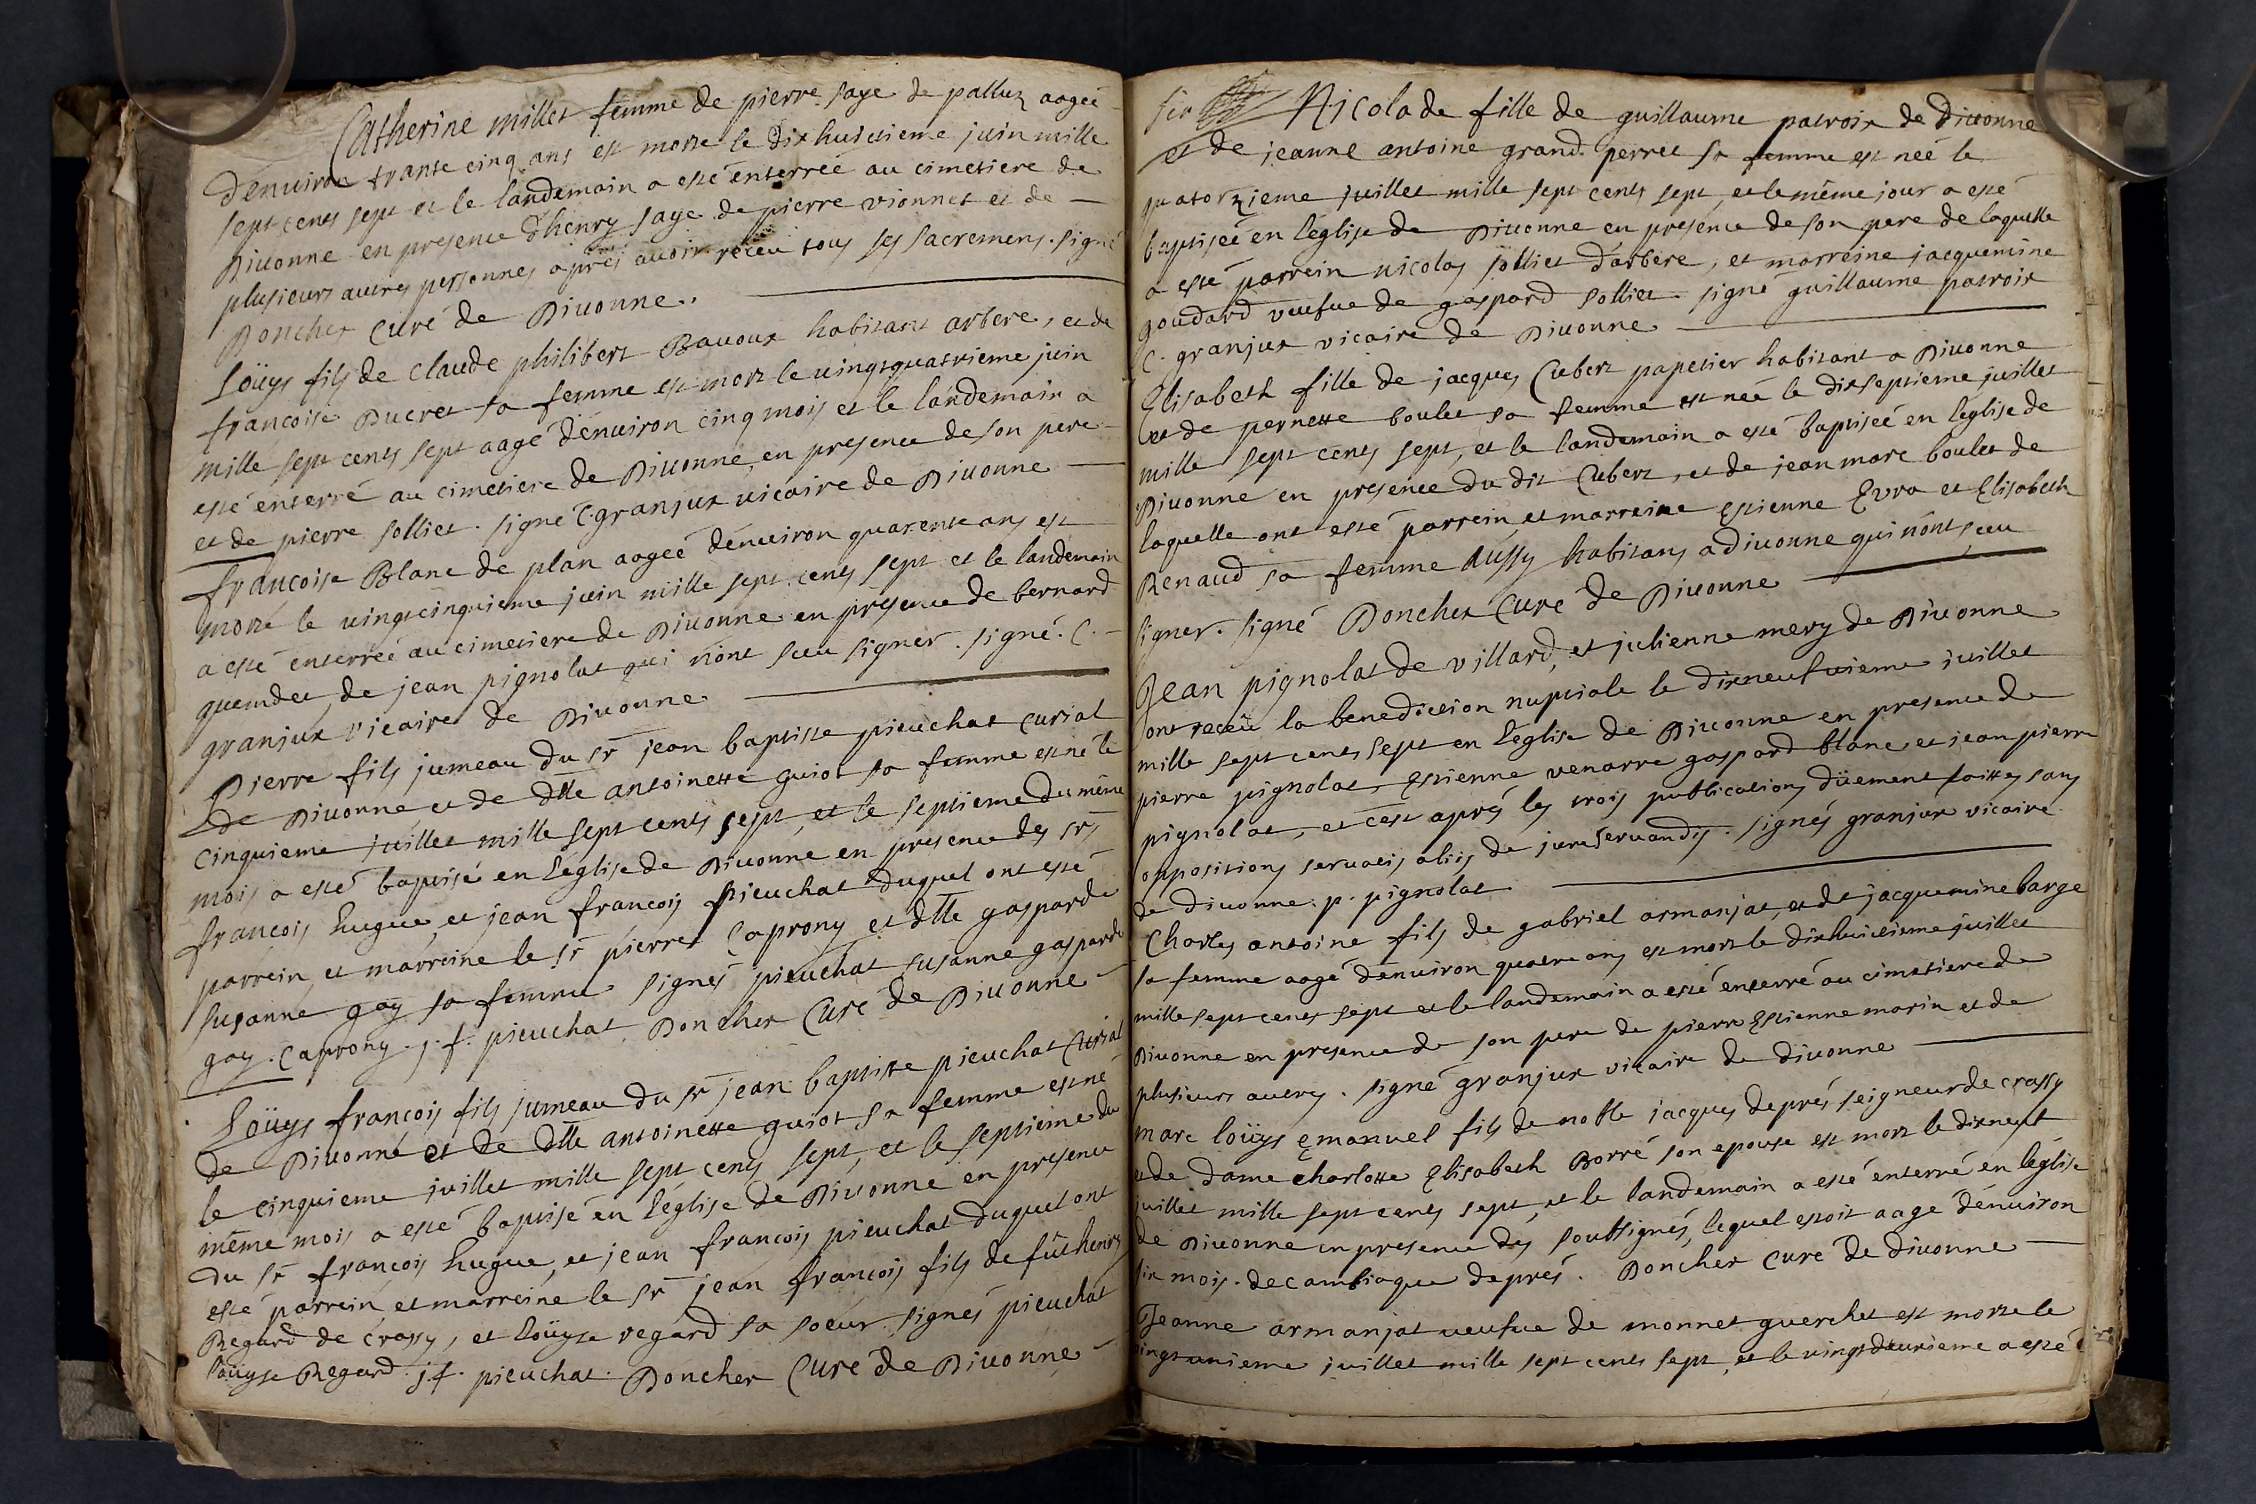 Catherine millet femme de pierre saye de palluz aageé
d'énuiron trante cinq ans est morte le dixhuitieme juin mille
sept cents sept et le landemain a esté énterreé au cimetiere de
Diuonne en presence d'henry saye de pierre vionnet et de
plusieurs autres personnes aprés auoir receu tous ses sacremens. signé
Poncher Curé de Diuonne.
Loüys fils de Claude philibert Bauoux habitant arbere, et de
francoise Ducret sa femme est mort le uingtquatrieme juin
mille sept cents sept aagé d'énuiron cinq mois et le landemain a
esté enterré au cimetiere de Diuonne, en presence de son pere
et de pierre solliet. signé C. granjux uicaire de Diuonne
francoise Blanc de plan aageé d'énuiron quarente ans est
morte le uingtcinquieme juin mille sept cents sept et le landemain
a esté enterreé au cimetiere de Diuonne en presence de bernard
guendet, de jean pignolat qui n'ont sceu signer. signé. C.
granjux vicaire de Diuonne
Pierre fils jumeau du sr jean baptiste pieuchat curial
de Diuonne, et de dlle antoinette guiot sa femme est né le
cinquieme juillet mille sept cents sept, et le septieme du même
mois a esté baptisé en l'église de Diuonne en presence des srs
francois hugue, et jean francois pieuchat duquel ont esté
parrein, et marreine le sr pierre Caprony et dlle gasparde
susanne gay sa femme signés pieuchat susanne gasparde
gay. Caprony. j. f. pieuchat. Poncher Curé de Diuonne
Loüys francois fils jumeau du sr jean baptiste pieuchat Curial
de Diuonne et de dlle antoinette guiot sa femme est né
le cinquieme juillet mille sept cents sept, et le septieme du
même mois a esté baptisé en l'église de Diuonne en presence
du sr francois hugue, et jean francois pieuchat duquel ont
esté parrein, et marreine le sr jean francois fils de fût henry
Regard de crassy, et Loüyse regard sa soeur signés pieuchat
loüyse Regard. j. f. pieuchat. Poncher Curé de Diuonne
Nicolade fille de guillaume patroix de Diuonne
et de jeanne antoine grand perret sa femme est neé le
quatorzieme juillet mille sept cents sept, et le même jour a esté
baptiseé en l'église de Diuonne en presence de son pere de laquelle
a esté parrein nicolas solliet d'arbere, et marreine jacquemine
goudard veufue de gaspard solliet. signé guillaume patroix
C. granjux vicaire de Diuonne
Elisabeth fille de jacques Cubert papetier habitant a Diuonne
et de pernette boulet sa femme est neé le dixseptieme juillet
mille sept cents sept, et le landemain a esté baptiseé en l'église de
Diuonne en presence du dit Cubert, et de jean marc boulet de
laquelle ont esté parrein, et marreine estienne Evra et Elisabeth
Renaud sa femme aussy habitans a diuonne qui n'ont sceu
signer. signé Poncher Curé de Diuonne
Jean pignolat de villard, et julienne mery de Diuonne
ont receu la benediction nuptiale le dixneufuieme juillet
mille sept cents sept en l'église de Diuonne en presence de
pierre pignolat, estienne venarre gaspard blanc et jean pierre
pignolat, et c'est aprés les trois publications düement faittes sans
oppositions seruatis aliis de jure seruandis. signés granjux vicaire
de diuonne. p. pignolat
Charles antoine fils de gabriel armanjat, et de jacquemine barge
sa femme aagé d'énuiron quatre ans est mort le dixhuitieme juillet
mille sept cents sept et le landemain a esté enterré au cimetiere de
Diuonne en presence de son pere de pierre estienne marin et de
plusieurs autres. signé granjux vicaire de diuonne
marc loüys emanuel fils de noble jacques deprés seigneur de crassy
et de dame charlotte Elisabeth Borré son epouse est mort le dixneuf
juillet mille sept cents sept, et le landemain a esté enterré en l'église
de Diuonne en presence des soussignés, lequel estoit aagé d'énuiron
six mois. decambiague deprés. Poncher curé de diuonne
Jeanne armanjat ueufue de monnet guerchet est morte le
uingt unieme juillet mille sept cents sept, et le vingt deuxieme a esté